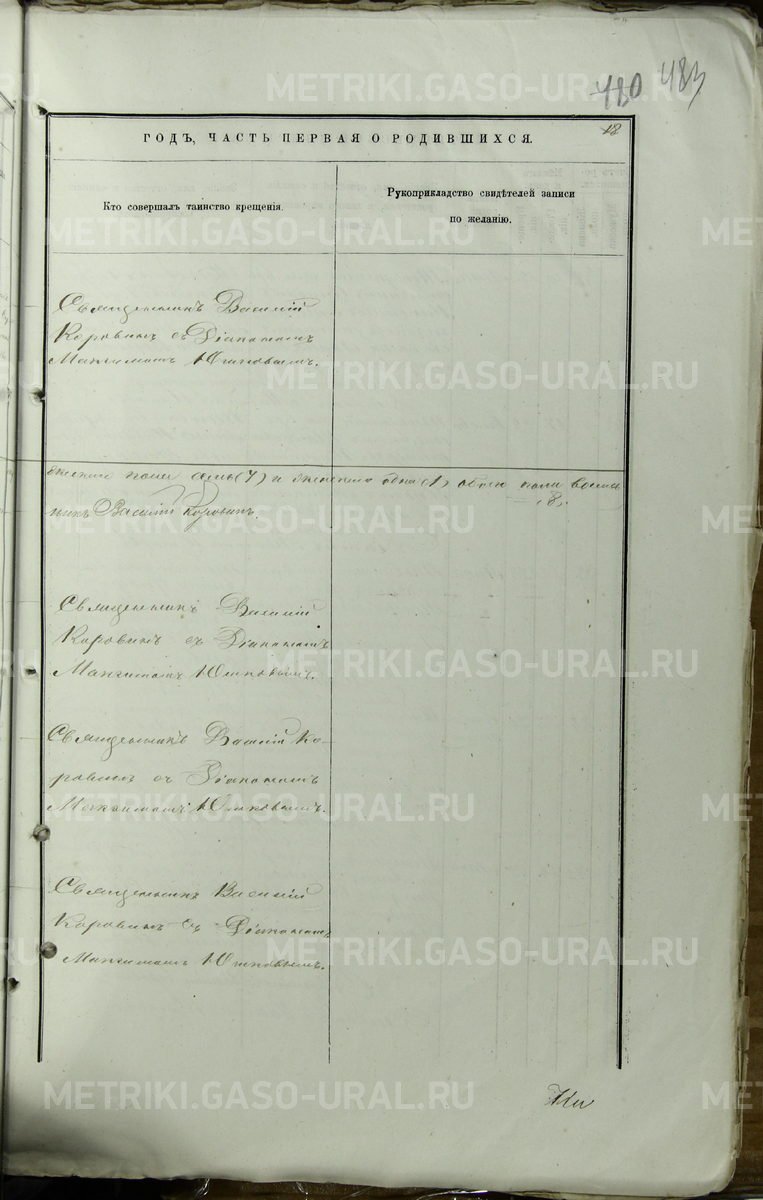 480 483
12
ГОДЪ, ЧАСТЬ ПЕРВАЯ О РОДИВШИХСЯ.
Кто совершалъ таинство крещенія.
Рукоприкладство свидѣтелей записи
по желанію.
Священникъ Василій
Коровинъ съ Діакономъ
Максимомъ Юшковымъ.
пола семь (7) и женскаго одна (1) обоего пола восемь
8.
никъ Василій Коровинъ.
Священникъ Василій
Коровинъ съ Діакономъ
Максимомъ Юшковымъ.
Священникъ Василій Ко-
ровинъ съ Діакономъ
Максимомъ Юшковымъ.
Священникъ Василій
Коровинъ съ Діакономъ
Максимомъ Юшковымъ.
METRIKI.GASO-URAL.RU